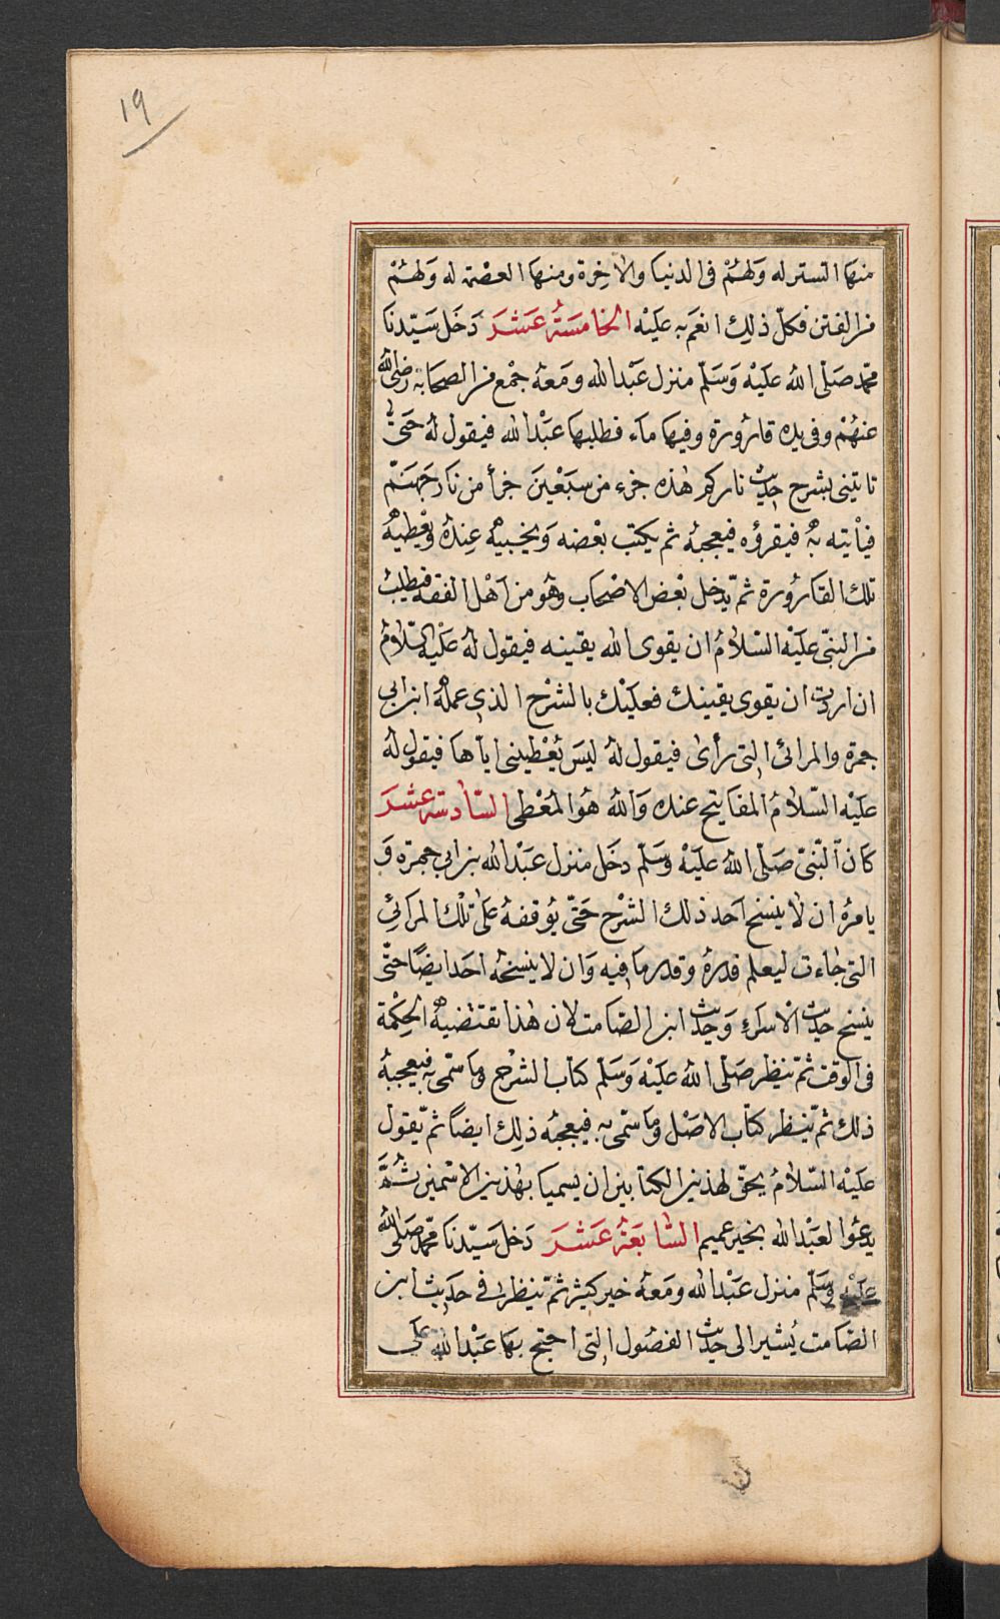 19
منها الستر له ولهم في الدنيا والاخرة ومنها العصمة له ولهم
من الفتن فكل ذلك انعم به عليه الخامسة عشر دخل سيدنا
محمد صلى الله عليه وسلم منزل عبد الله ومعه جمع من الصحابة رضي الله
عنهم وفي يده قارورة وفيها ماء فطلبها عبد الله فيقول له حتى
تاتيني بشرح حديث ناركم هذه جزء من سبعين جزأ من نار جهنم
فيأتيه به فيقرؤه فيعجبه ثم يكتب بعضه ويخبيه عنده ويعطيه
تلك القارورة ثم يدخل بعض الاصحاب وهو من اهل الفقه فيطلب
من النبي عليه السلام ان يقوى الله يقينه فيقول له عليه السلام
ان اردت ان يقوى يقينك فعليك بالشرح الذي عمله ابن ابي
جمرة والمرائي التي رأى فيقول له ليس يعطيني اياها فيقول له
عليه السلام المفاتيح عنده والله هو المعطى السادسة عشر
كان النبي صلى الله عليه وسلم دخل منزل عبد الله بن ابي جمرة و
يامره ان لا ينسخ احد ذلك الشرح حتى يوقفه على تلك المرائي
التي جاءت ليعلم قدره وقدر ما فيه وان لا ينسخه احد ايضا حتى
ينسخ حديث الاسراء وحديث ابن الصامت لان هذا تقتضيه الحكمة
في الوقت ثم ينظر صلى الله عليه وسلم كتاب الشرح وما سمى به فيعجبه
ذلك ثم ينظر كتاب الاصل وما سمى به فيعجبه ذلك ايضاً ثم يقول
عليه السلام يحق لهذين الكتابين ان يسميا بهذين الاسمين ثم
يدعوا لعبد الله بخير عميم السابعة عشر دخل سيدنا محمد صلى الله
عليه وسلم منزل عبد الله ومعه خير كثير ثم ينظر في حديث ابن
الصامت يشير الى حديث الفصول التي احتج بها عبد الله على